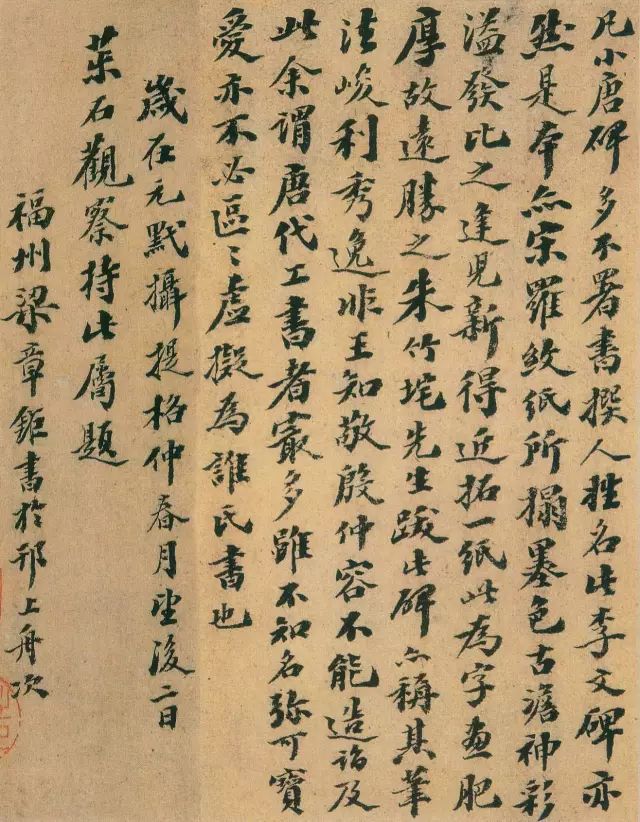 凡小唐碑多不署書撰人姓名此李文碑亦
然是本亦宋羅紋紙所搨墨色古澹神彩
溢發比之逢兒新得近拓一紙此為字畫肥
厚故遠勝之朱竹垞先生跋此碑亦稱其筆
法峻利秀逸非王知敬殷仲容不能造詣及
此余謂唐代工書者㝡多雖不知名弥可寶
愛亦不必區〻虛擬為誰氏書也
歲在元黓攝提格仲春月望後二日
茮石觀察持此屬題
福州梁章鉅書於邗上舟次